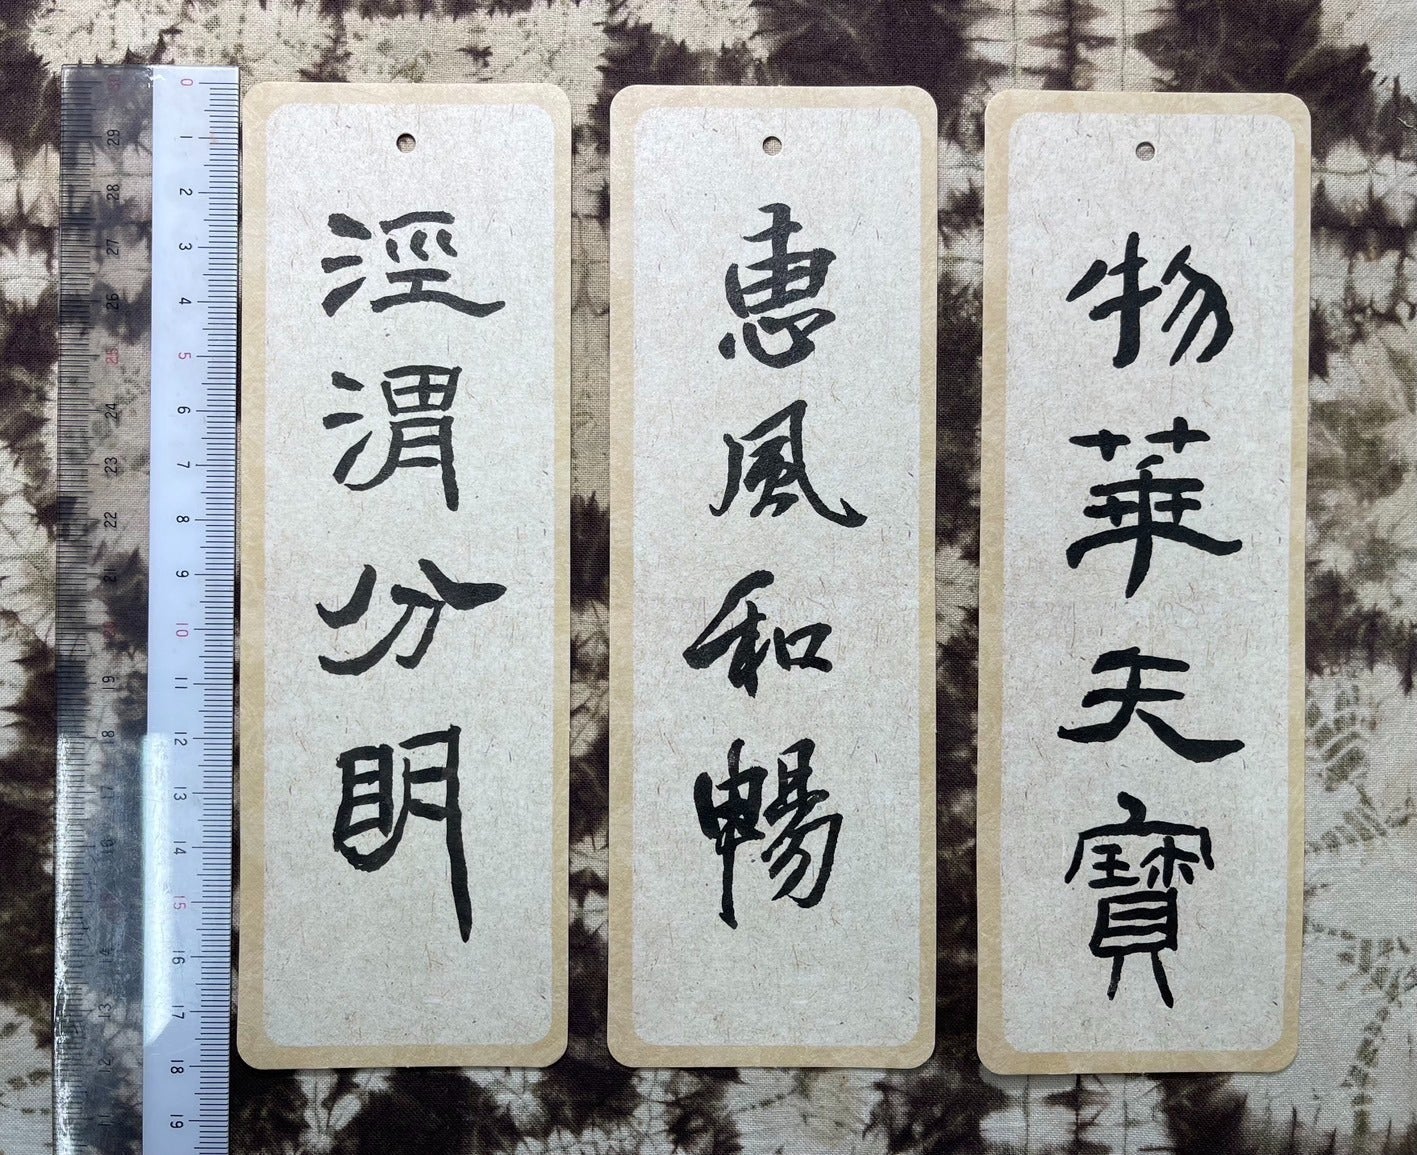 29 28 27 26 25 24 23 22 21 19 18 17 16 14 13 12 11
0 1 2 3 4 5 6 7 8 9 10 11 12 13 14 15 16 17 18 19
涇渭分明
惠風和暢
物華天寶